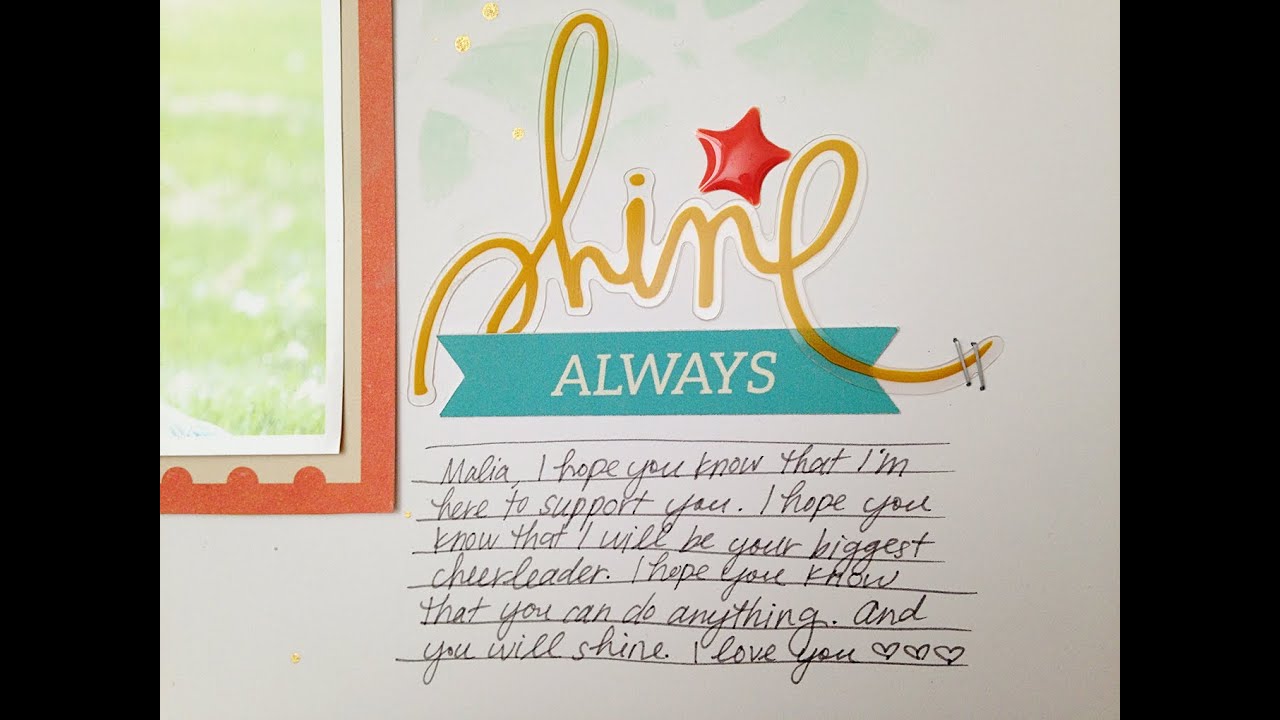 shine
ALWAYS
Malia, I hope you know that I'm
here to support you. I hope you
know that I will be your biggest
cheerleader. I hope you know
that you can do anything. And
you will shine. I love you ♡♡♡